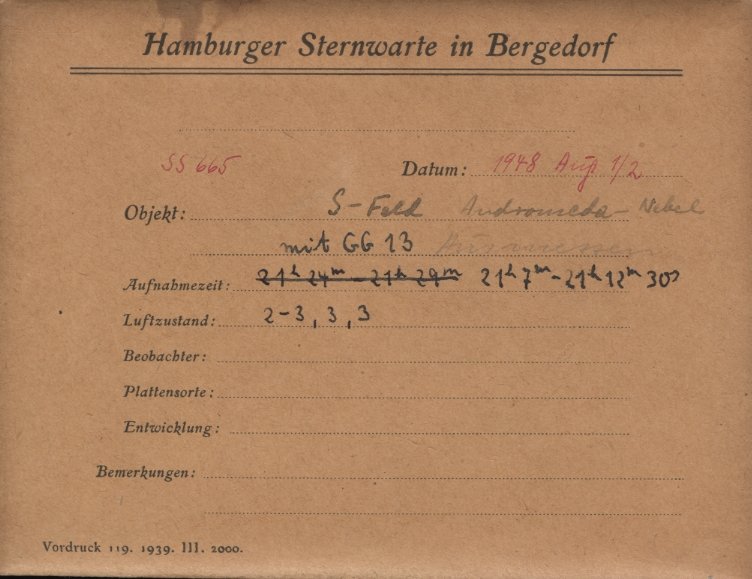 Hamburger Sternwarte in Bergedorf
SS 665 Datum: 1948 Aug 1/2
Objekt: S-Feld Andromeda-Nebel
mit GG 13
Aufnahmezeit: 21h 24m - 21h 29m 21h 7m - 21h 12m 30s
Luftzustand: 2-3, 3, 3
Beobachter:
Plattensorte:
Entwicklung:
Bemerkungen:
Vordruck 119. 1939. III. 2000.